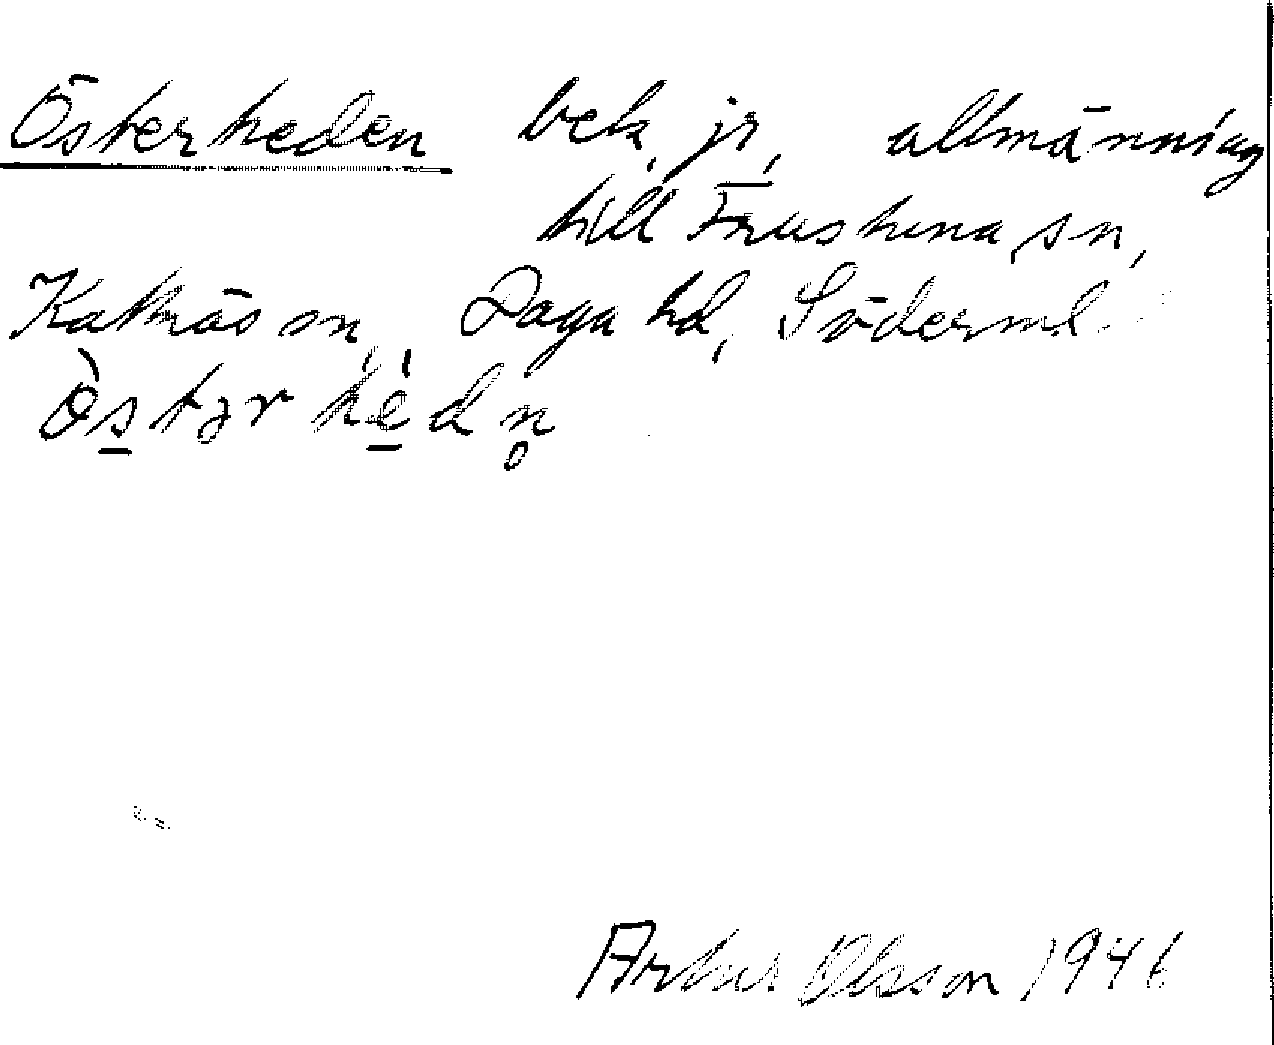 Österheden bek, jr, allmänning
till Frustuna sn,
Kattnäs sn, Daga hd, Söderml.
ò̀s̠tər hé̠dn̥
Artur Olsson 1946